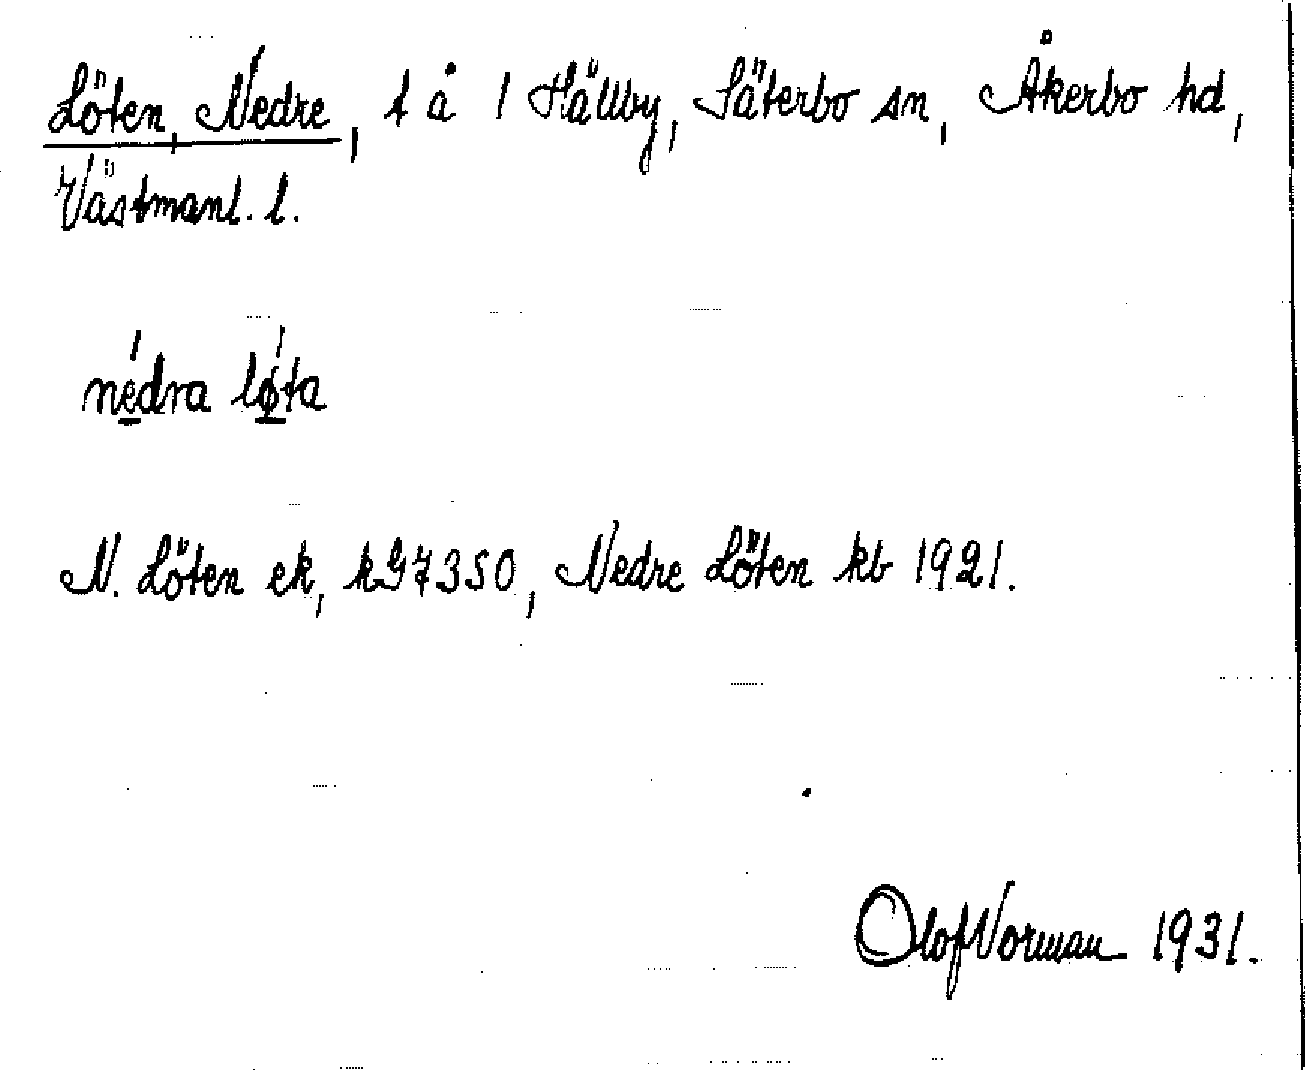 Löten, Nedre, t å l Hällby, Säterbo sn, Åkerbo hd,
Västmanl. l.
nédra lǿta
N. Löten ek, kG7350, Nedre Löten kb 1921.
Olof Norman 1931.